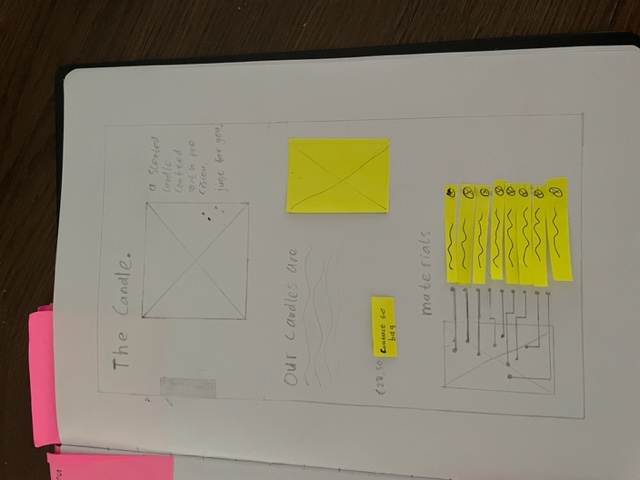 The Candle.
a scented
candle
crafted
with pre
cision,
just for you.
Our candles are
€28,50
to
bag
materials